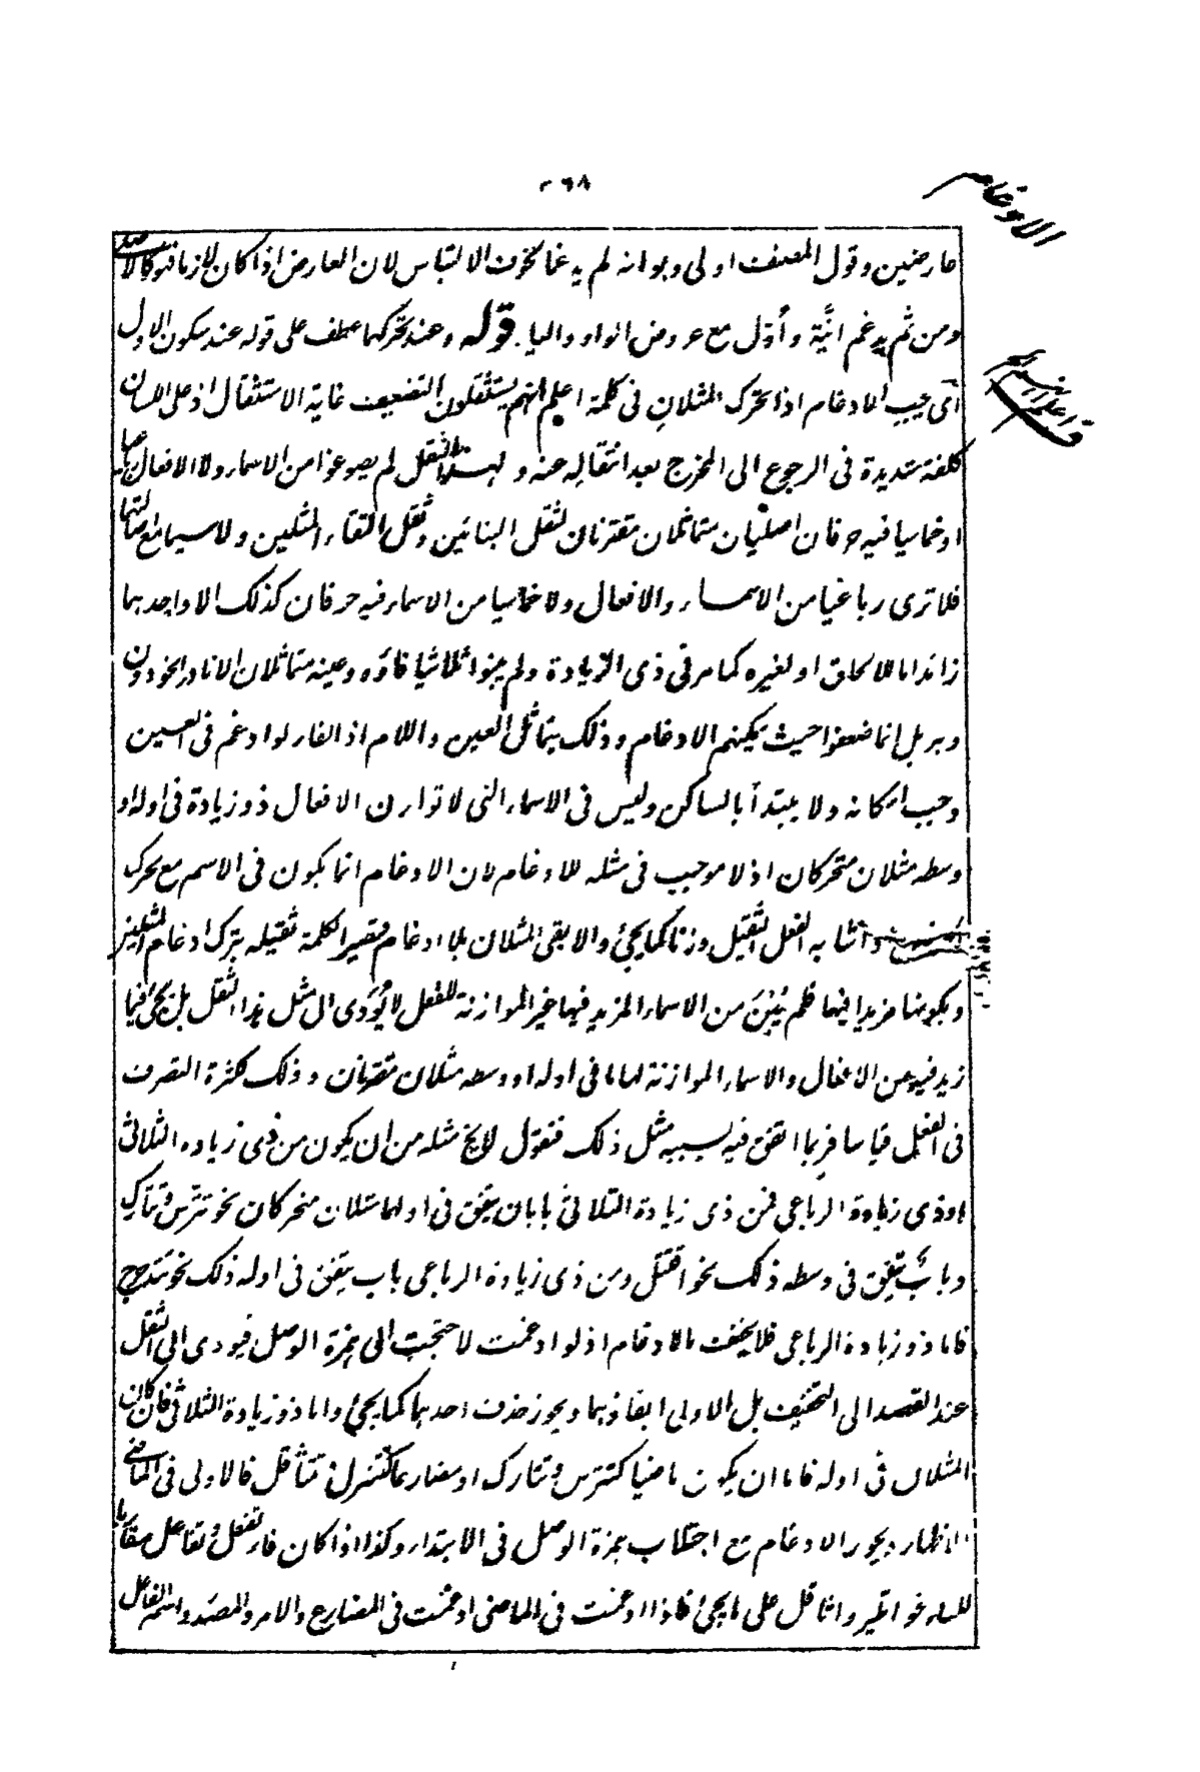 ٣٦٨
الادغام
عارضين وقول المصنف اولى وبوانه لم يدغما لخوف الالتباس لان العارض اذا كان لازما فهو كالاصلى
ومن ثم يدغم انيّة واُوّل مع عروض الواو والياء قوله وعند تحركهما عطف على قوله عند سكون الاول
اى يجب الادغام اذا تحرك المثلان فى كلمة اعلم انهم يستثقلون التضعيف غاية الاستثقال اذ على اللسان
كلفة شديدة فى الرجوع الى المخرج بعد انتقاله عنه ولهذا الثقل لم يصوغوا من الاسماء ولا الافعال رباعيا
او خماسيا فيه حرفان اصليان متماثلان مقترنان لثقل البنائين وثقل التقاء المثلين ولا سيما مع اصالتهما
فلا ترى رباعيا من الاسماء والافعال ولا خماسيا من الاسماء فيه حرفان كذلك الا واحدهما
زائد اما للالحاق او لغيره كما مر فى ذى الزيادة ولم يبنوا ثلاثيا فاؤه وعينه متماثلان الا نادرا نحو ددن
وببر بل انما ضعفوا حيث يمكنهم الادغام وذلك بتماثل العين واللام اذ الفاء لو ادغم فى العين
وجب اسكانه ولا يبتدأ بالساكن وليس فى الاسماء التى لا توازن الافعال ذو زيادة فى اوله او
وسطه مثلان متحركان اذ لا موجب فى مثله للادغام لان الادغام انما يكون فى الاسم مع تحرك
وشابه الفعل الثقيل وزنا كما يجئ والا بقى المثلان بلا ادغام فتصير الكلمة ثقيلة بترك ادغام المثلين
وبكونها مزيدا فيها فلم يُبْنَ من الاسماء المزيد فيها غير الموازنة للفعل لا يُؤدى الى مثل هذا الثقل بل يجئ فيما
زيد فيه من الافعال والاسماء الموازنة لها ما فى اوله او وسطه مثلان مقترنان وذلك لكثرة التصرف
فى الفعل قياسا فربما اتفق فيه لسببه مثل ذلك فنقول لا يخ مثله من ان يكون من ذى زيادة الثلاثى
او ذى زيادة الرباعى فمن ذى زيادة الثلاثى بابان يتفق فى اولهما مثلان متحركان نحو تترّس وتتارك
وبابٌ يتفق فى وسطه ذلك نحو اقتتل ومن ذى زيادة الرباعى باب يتفق فى اوله ذلك نحو تتدحرج
فاما ذو زيادة الرباعى فلا يخفف بالادغام اذ لو ادغمت لاحتجت الى همزة الوصل فيودى الى الثقل
عند القصد الى التخفيف بل الاولى ابقاؤهما ويجوز حذف احدهما كما يجئ واما ذو زيادة الثلاثى فان كان
المثلان فى اوله فاما ان يكون ماضيا كتترس وتتارك او مضارعا كتتنزل وتتثاقل فالاولى فى الماضى
الاظهار ويجوز الادغام مع اجتلاب همزة الوصل فى الابتداء وكذا اذا كان فاء تفعل وتفاعل مقاربا
للتاء نحو اطير واثاقل على ما يجئ فاذا ادغمت فى الماضى ادغمت فى المضارع والامر والمصدر واسم الفاعل